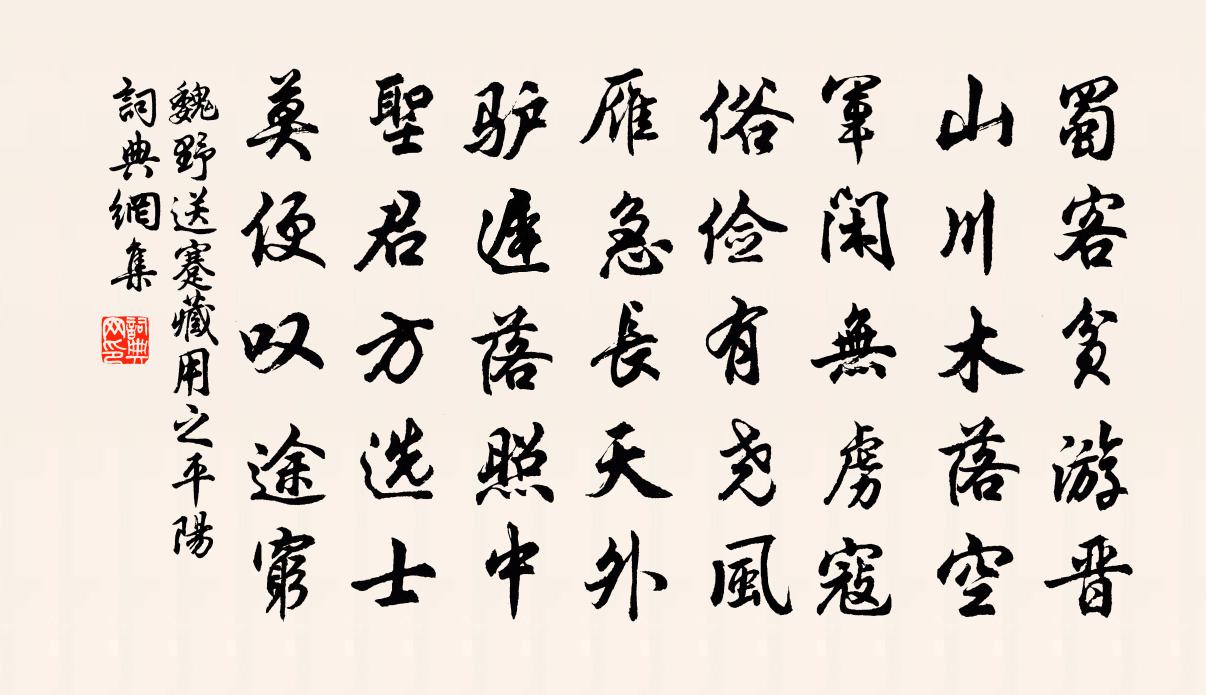 蜀客贫游晋
山川木落空
軍閑無虜寇
俗俭有尧風
雁急長天外
驴遲落照中
聖君方选士
莫便叹途窮
魏野送蹇藏用之平陽
詞典網集
詞典网印